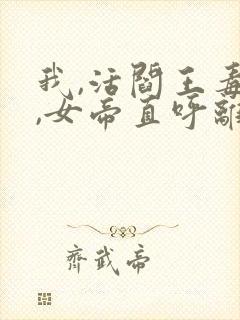 我,活阎王毒
,女帝直呼離
齊武帝